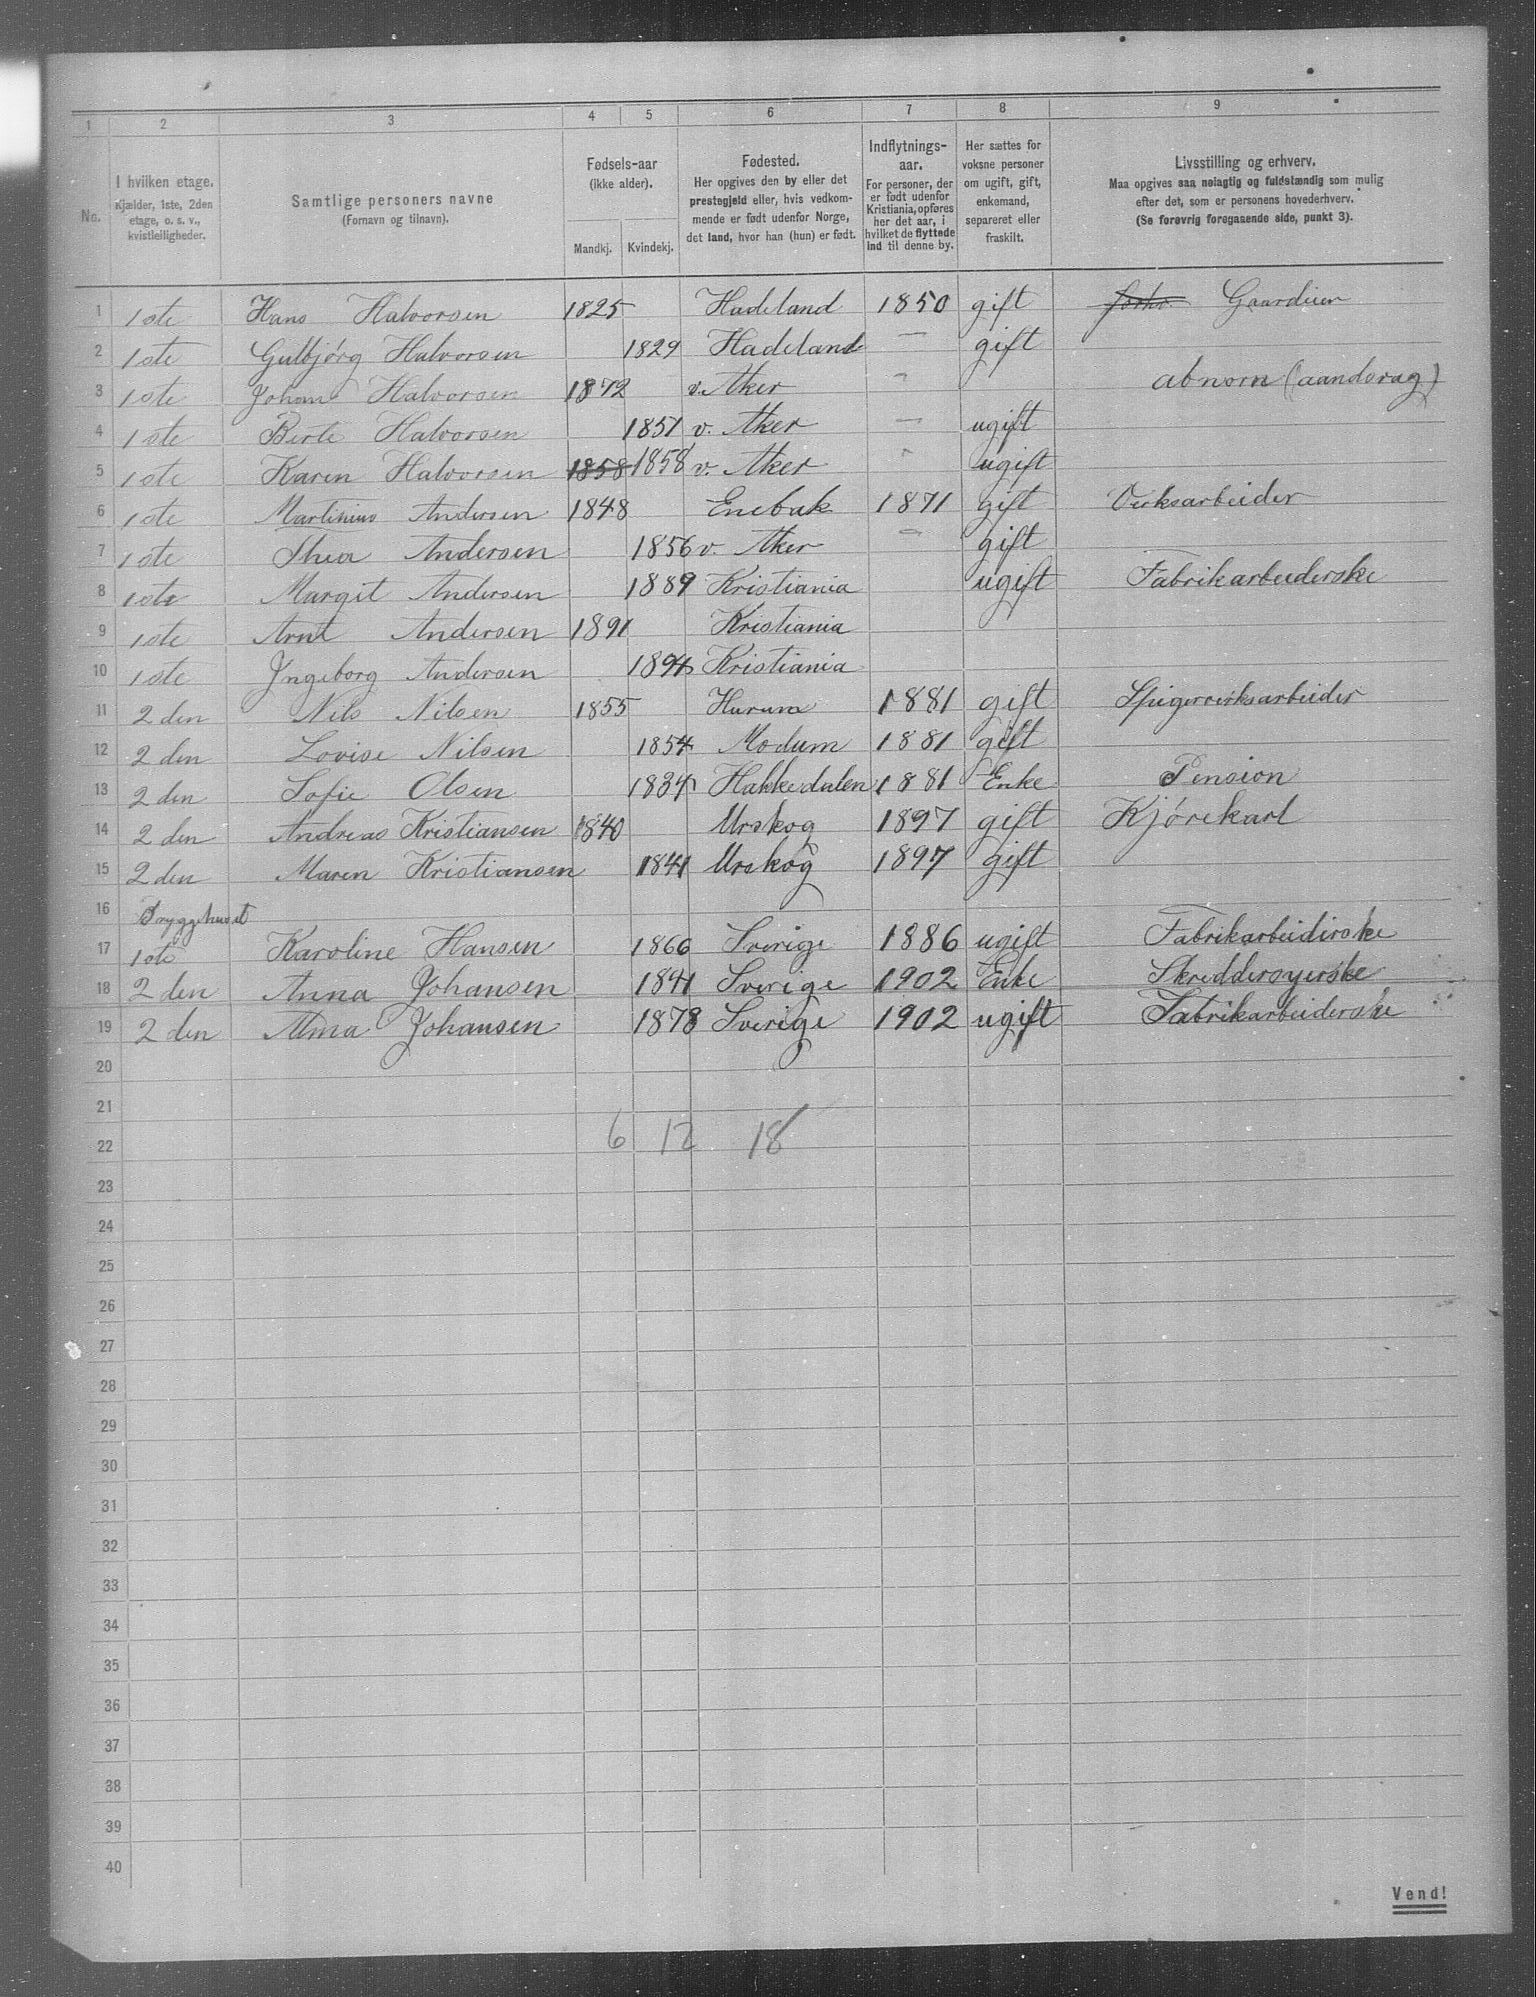 1 2 3 4 5 6 7 8 9
No.
I hvilken etage.
Kjælder, 1ste, 2den
etage, o. s. v.,
kvistleiligheder.
Samtlige personers navne
(Fornavn og tilnavn).
Fødsels-aar
(ikke alder).
Mandkj. Kvindekj.
Fødested.
Her opgives den by eller det
prestegjeld eller, hvis vedkom-
mende er født udenfor Norge,
det land, hvor han (hun) er født.
Indflytnings-
aar.
For personer, der
er født udenfor
Kristiania, opføres
her det aar, i
hvilket de flyttede
ind til denne by.
Her sættes for
voksne personer
om ugift, gift,
enkemand,
separeret eller
fraskilt.
Livsstilling og erhverv.
Maa opgives saa nøiagtig og fuldstændig som mulig
efter det, som er personens hovederhverv.
(Se forøvrig foregaaende side, punkt 3).
1 1ste Hans Halvorsen 1825 Hadeland 1850 gift Gaardeier
2 1ste Gulbjørg Halvorsen 1829 Hadeland — gift
3 1ste Johan Halvorsen 1872 v. Aker " abnorn (aandsvag)
4 1ste Berte Halvorsen 1851 v. Aker — ugift
5 1ste Karen Halvorsen 1858 1858 v. Aker " ugift
6 1ste Martinius Andersen 1848 Enebak 1871 gift Verksarbeider
7 1ste Thea Andersen 1856 v. Aker — gift
8 1ste Margit Andersen 1889 Kristiania ugift Fabrikarbeiderske
9 1ste Arnt Andersen 1891 Kristiania
10 1ste Jngeborg Andersen 1894 Kristiania
11 2den Nils Nilsen 1855 Hurum 1881 gift Spigerverksarbeider
12 2den Lovise Nilsen 1854 Modum 1881 gift
13 2den Sofie Olsen 1834 Hakkedalen 1881 Enke Pension
14 2den Andreas Kristiansen 1840 Urskog 1897 gift Kjørekarl
15 2den Maren Kristiansen 1841 Urskog 1897 gift
16 Bryggehuset
17 1ste Karoline Hansen 1866 Sverige 1886 ugift Fabrikarbeiderske
18 2den Anna Johansen 1841 Sverige 1902 Enke Skreddersyerske
19 2den Alma Johansen 1878 Sverige 1902 ugift Fabrikarbeiderske
20
21
22 6 12 18
23
24
25
26
27
28
29
30
31
32
33
34
35
36
37
38
39
40
Vend!